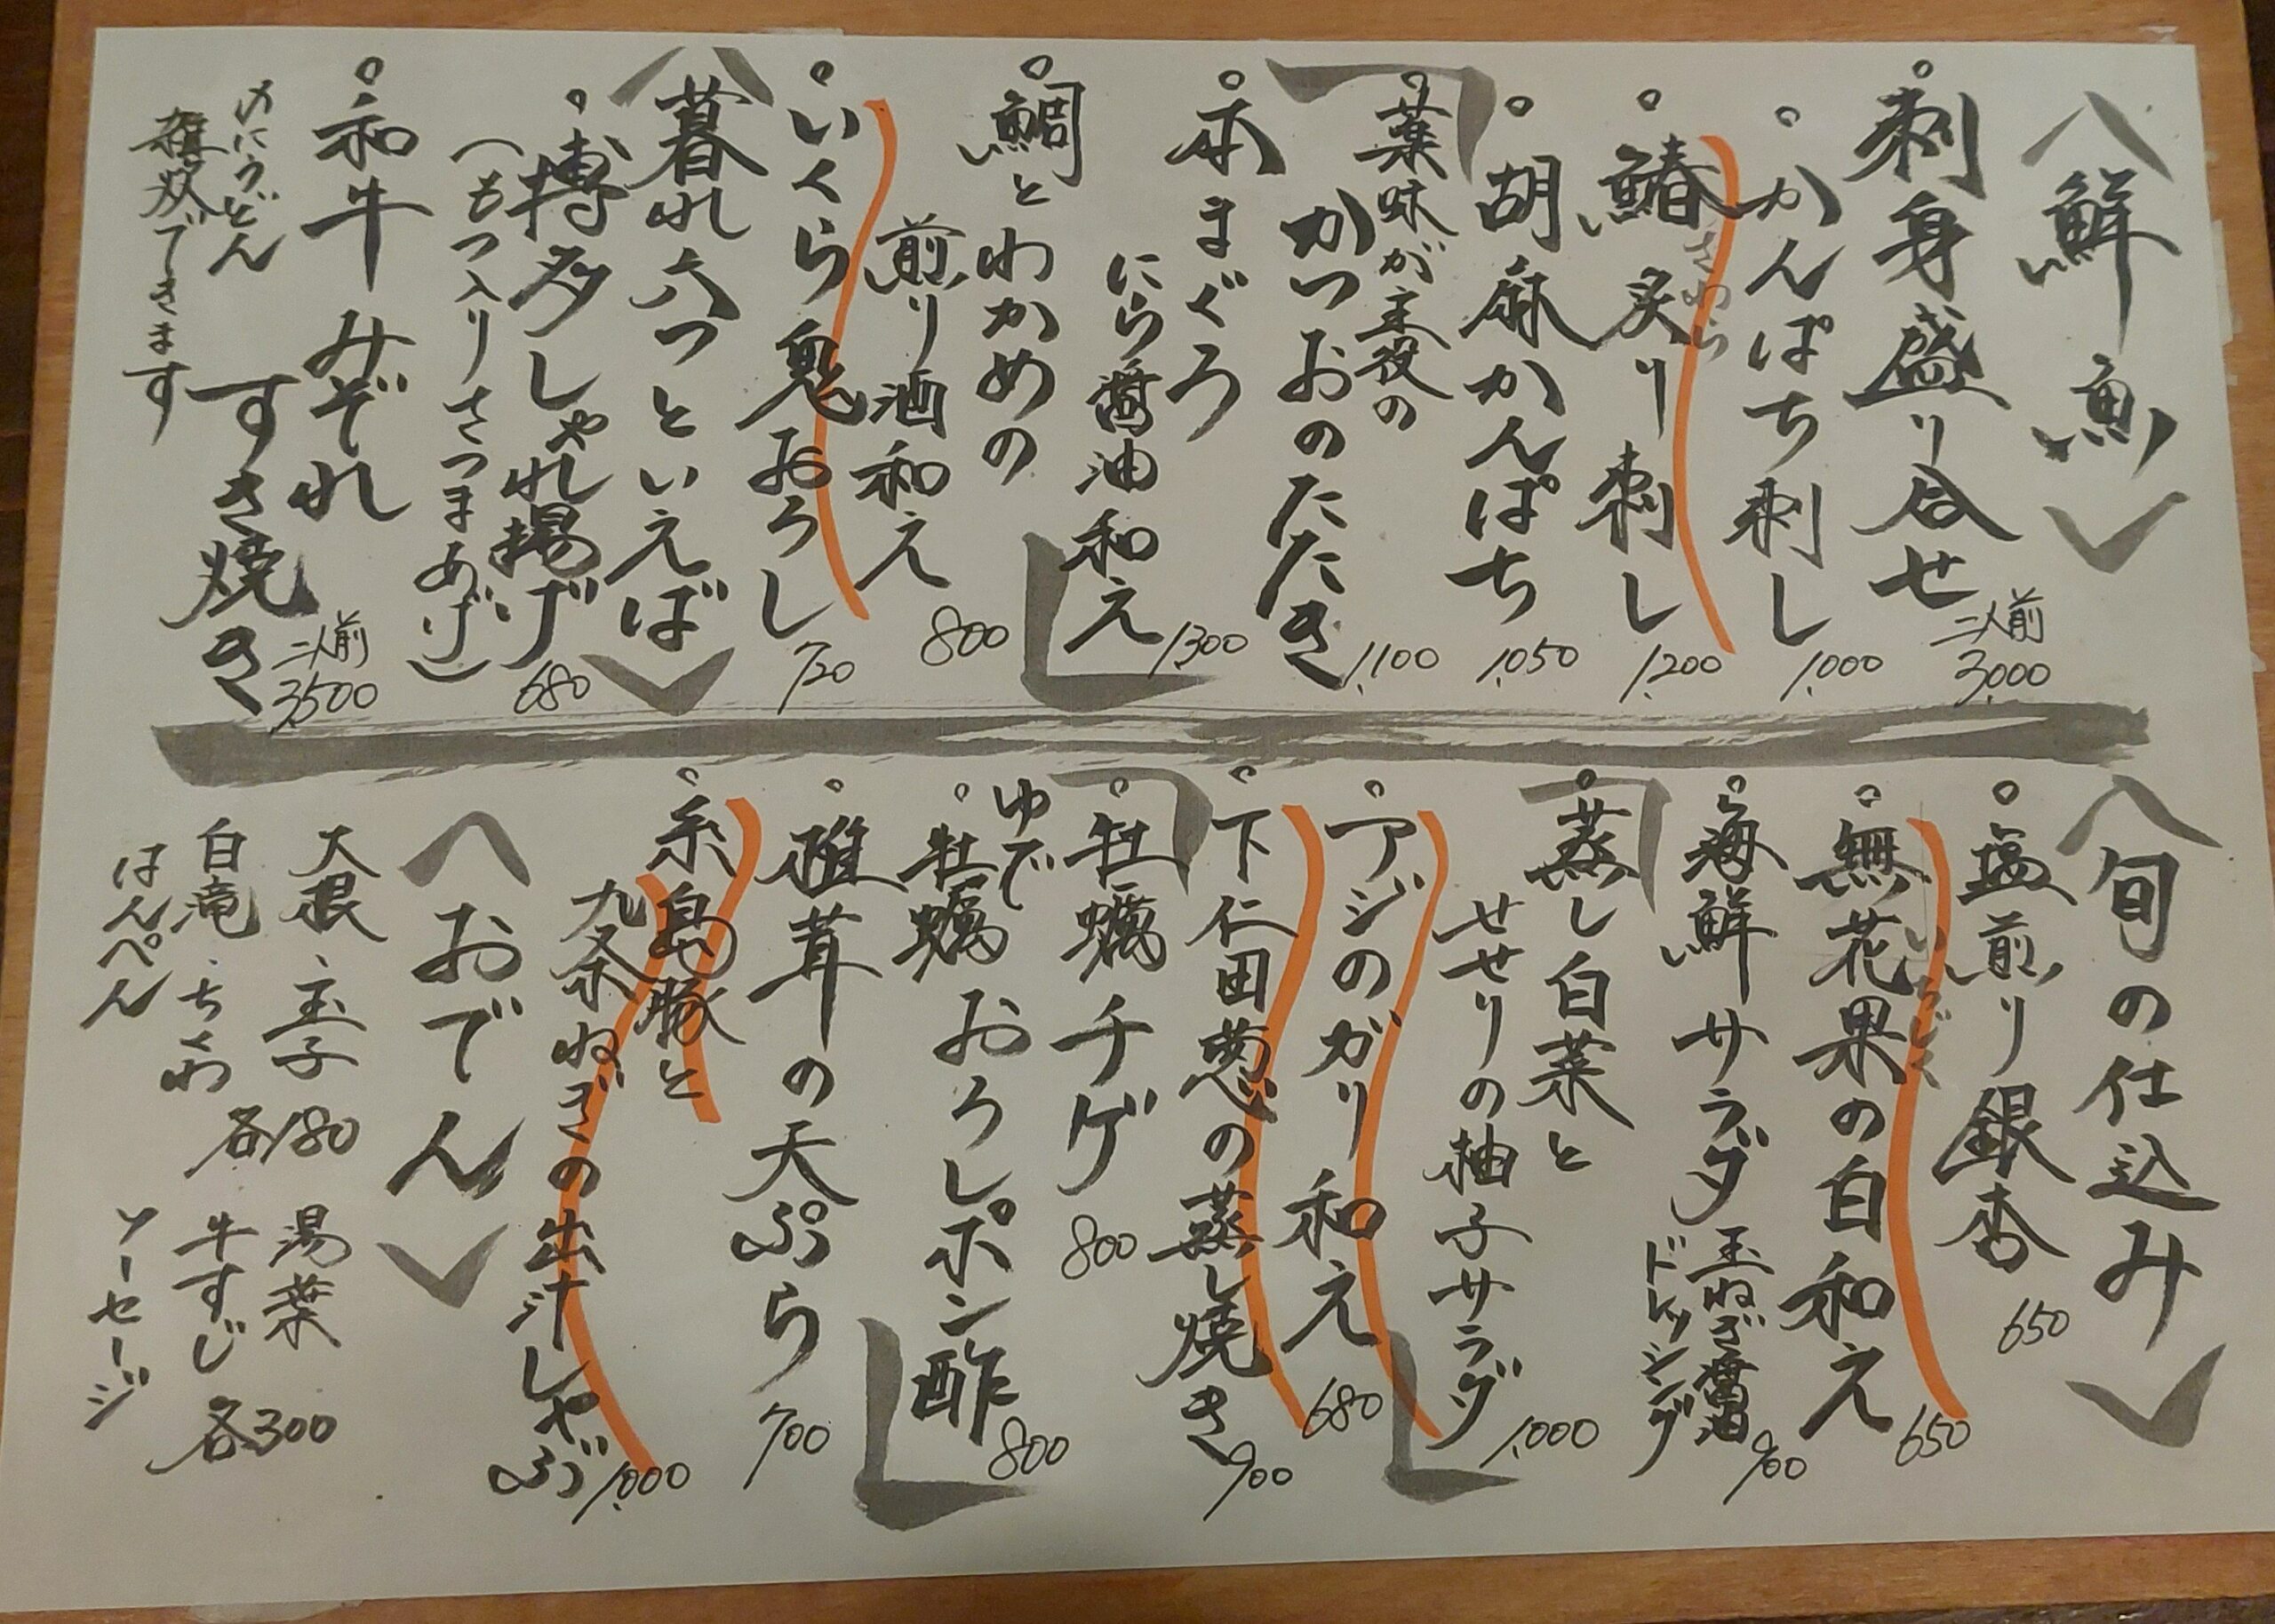 鮮魚
刺身盛り合せ 二人前 3,000
かんぱち刺し 1,000
鰆炙り刺し 1,200
さわら
胡麻かんぱち 1,050
薬味が主役の
かつおのたたき 1,100
本まぐろ
にら醤油和え 1300
鯛とわかめの
煎り酒和え 800
いくら鬼おろし 720
暮れ六つといえば
博多しゃれ揚げ 680
(もつ入りさつまあげ)
和牛みぞれ
すき焼き 二人前 3,500
〆にうどん
雑炊できます
旬の仕込み
塩煎り銀杏 650
いちじく
無花果の白和え 650
海鮮サラダ 玉ねぎ醤油
ドレッシング 900
蒸し白菜と
せせりの柚子サラダ 1,000
アジのガリ和え 680
下仁田葱の蒸し焼き 900
牡蠣チゲ 800
ゆで
牡蠣おろしポン酢 800
椎茸の天ぷら 700
糸島豚と
九条ねぎの出汁しゃぶ 1,000
おでん
大根、玉子
白滝、ちくわ
はんぺん
各180
湯葉
牛すじ
ソーセージ
各300